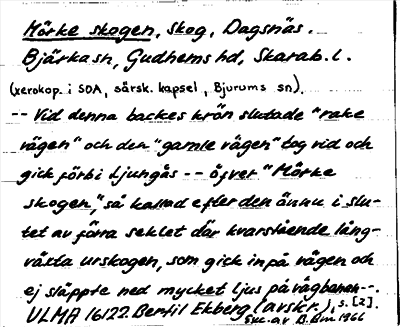 Mörke skogen, skog, Dagsnäs.
Bjärka sn, Gudhems hd, Skarab. l.
(xerokop. i SOA, särsk. kapsel, Bjurums sn).
-- Vid denna backes krön slutade "rake
vägen" och den "gamle vägen" tog vid och
gick förbi Ljungås -- öfver "Mörke
skogen", så kallad efter den ännu i slu-
tet av förra seklet där kvarstående lång-
växta urskogen, som gick inpå vägen och
ej släppte ned mycket ljus på vägbanan--.
ULMA 16122 Bertil Ekberg (avskr.), s. [2].
1966